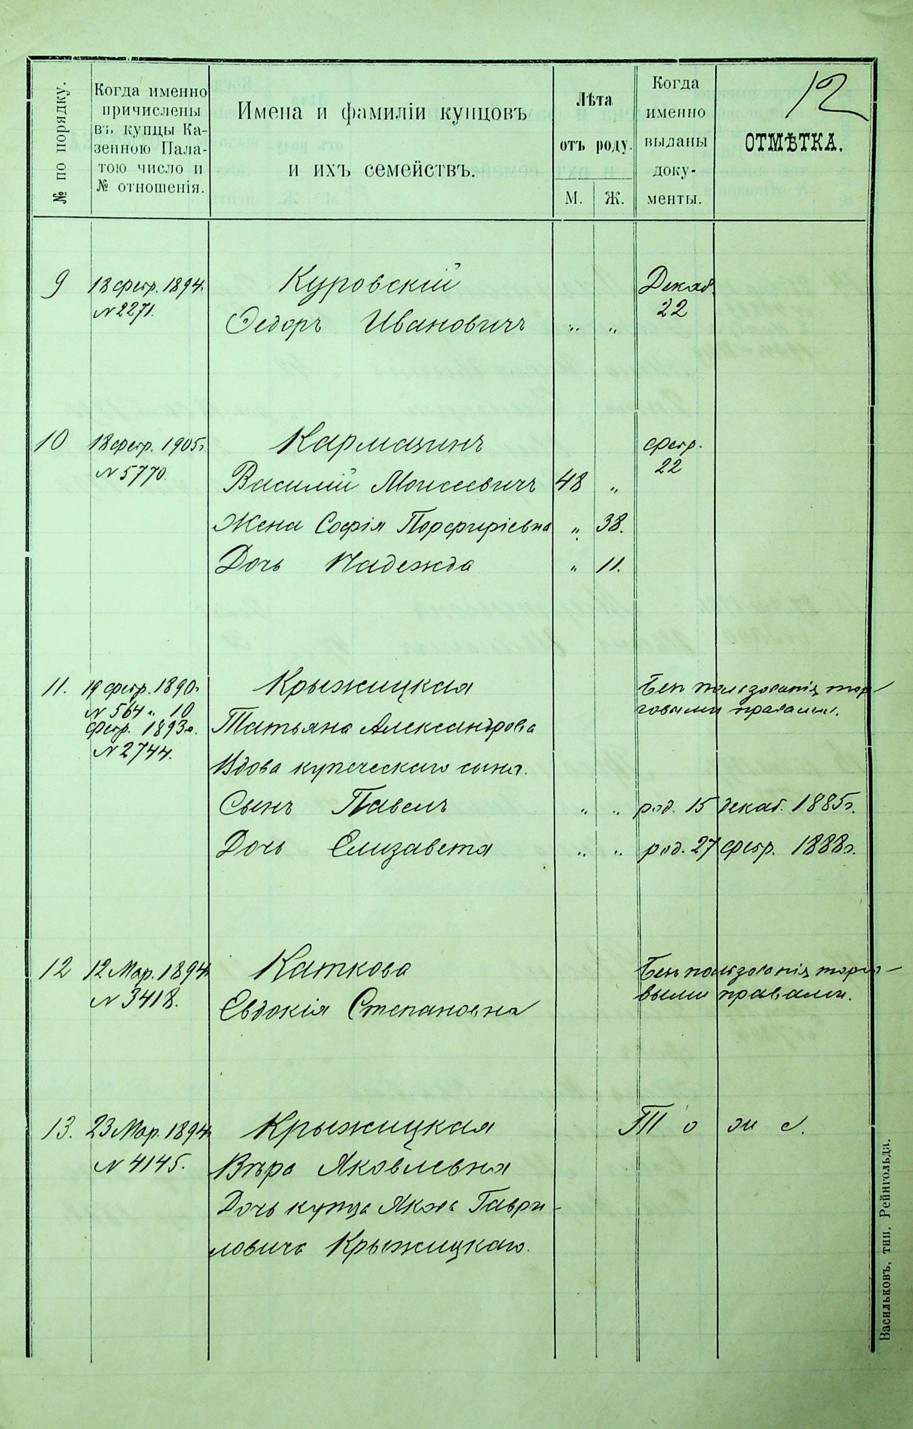 12
№ по порядку.
Когда именно
причислены
въ купцы Ка-
зенною Пала-
тою число и
№ отношенія.
Имена и фамиліи купцовъ
и ихъ семействъ.
Лѣта
отъ роду.
М.
Ж.
Когда
именно
выданы
доку-
менты.
ОТМѢТКА.
9
18 февр. 1894.
№ 2271.
Куровскій
Ѳедоръ Ивановичъ " "
Декаб.
22
10
18 февр. 1905г.
№ 5770.
Кармазинъ
Василій Моисеевичъ 48 "
февр.
22
Жена Софія Порфиріевна " 38.
Дочь Надежда " 11.
11.
19 февр. 1890г.
№ 564 " 10
февр. 1893г.
№ 2744.
Крыжицкая
Татьяна Александрова
Вдова купеческаго сына.
Безъ пользованія тор-
говыми правами.
Сынъ Павелъ " " род. 15 декаб. 1885г.
Дочь Елизавета " " род. 27 февр. 1888г.
12
12 Мар. 1894.
№ 3418.
Каткова
Евдокія Степановна
Безъ пользованія торго-
выми правами.
13.
23 Мар. 1894.
№ 4145.
Крыжицкая
Вѣра Яковлевна
Дочь купца Якова Гаври-
ловича Крыжицкаго.
То же.
Васильковъ, тип. Рейнгольда.